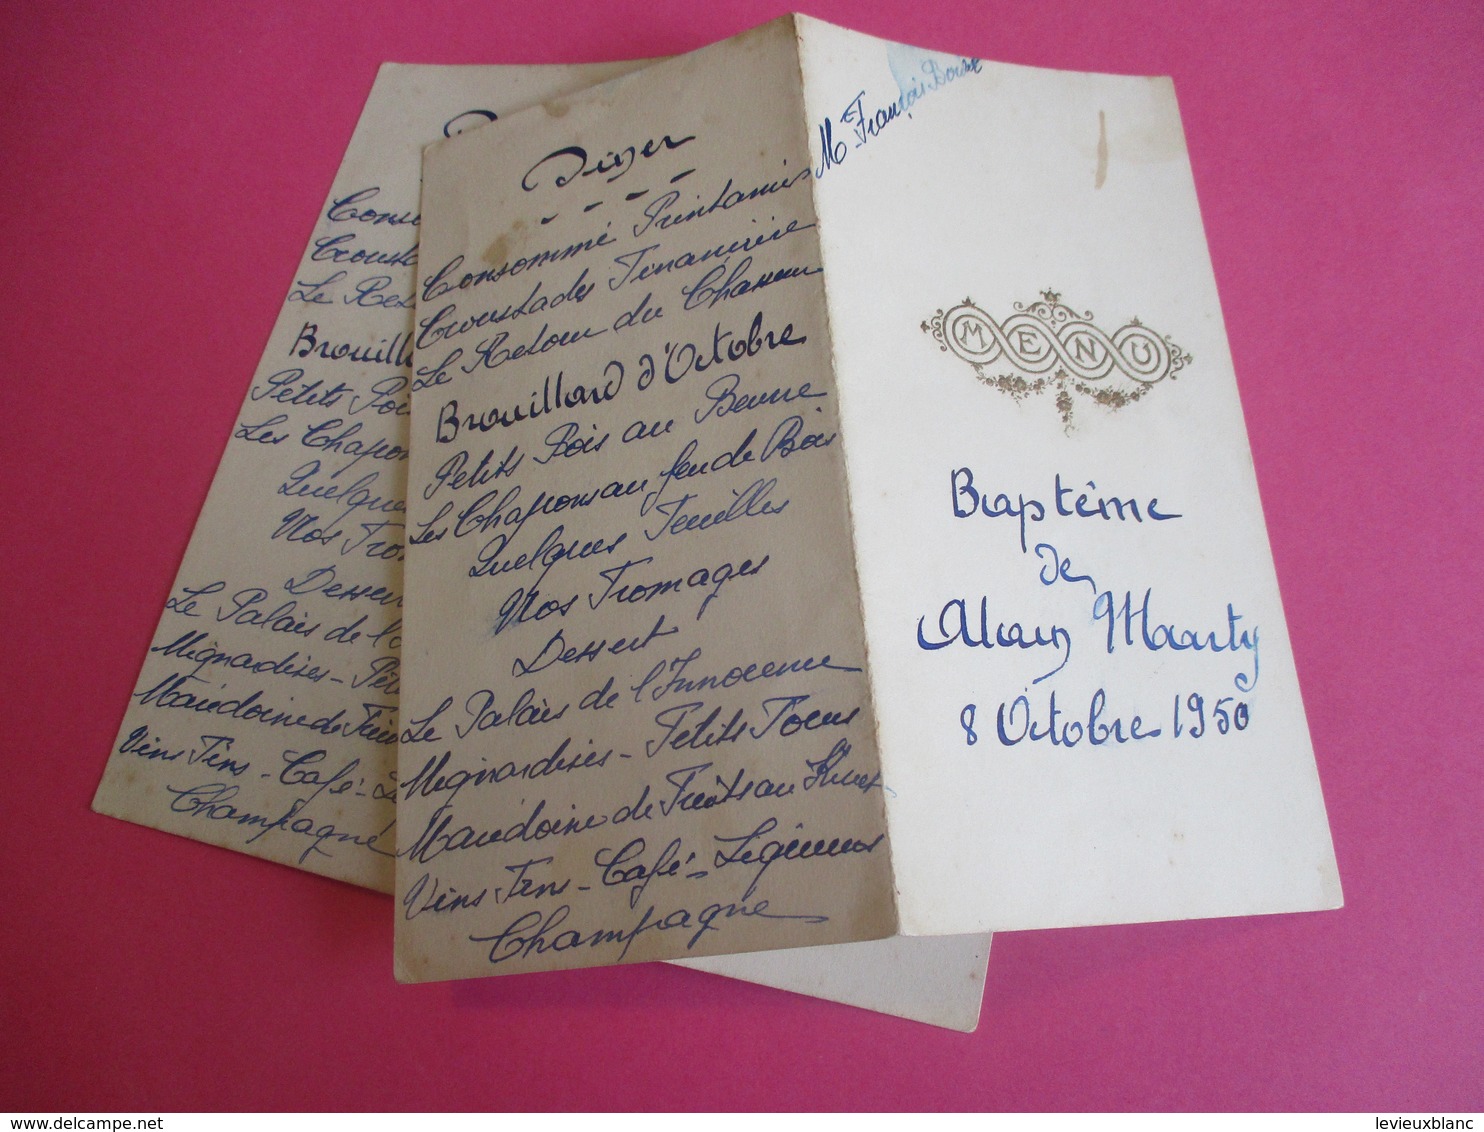 Diner
Consommé Printanier
Croustades Financière
Le Retour du Chasseur
Brouillard d'Octobre
Petits Pois au Beurre
Les Chapons au feu de Bois
Quelques Feuilles
Nos Fromages
Dessert
Le Palais de l'Innocence
Mignardises - Petits Fours
Mandoine de Fruits au
Vins Fins - Café - Liqueurs
Champagne
Mr François
MENU
Baptême
de
Alain Marty
8 Octobre 1950
Conso
Crousta
Le Ret
Brouill
Petits Poi
Les Chapon
Quelques
Nos Fro
Desser
Le Palais de l'
Mignardises - Pet
Mandoine de Frui
Vins Fins - Café - L
Champagne
delcampe.net
levieuxblanc